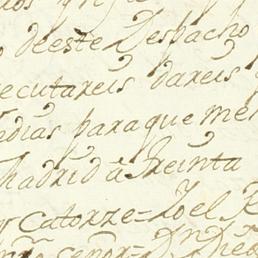 deeste Despacho
ecutareis dareis
edias paraque me
Madrid à treinta
y catorze=Yo el R
señor=Dn Die